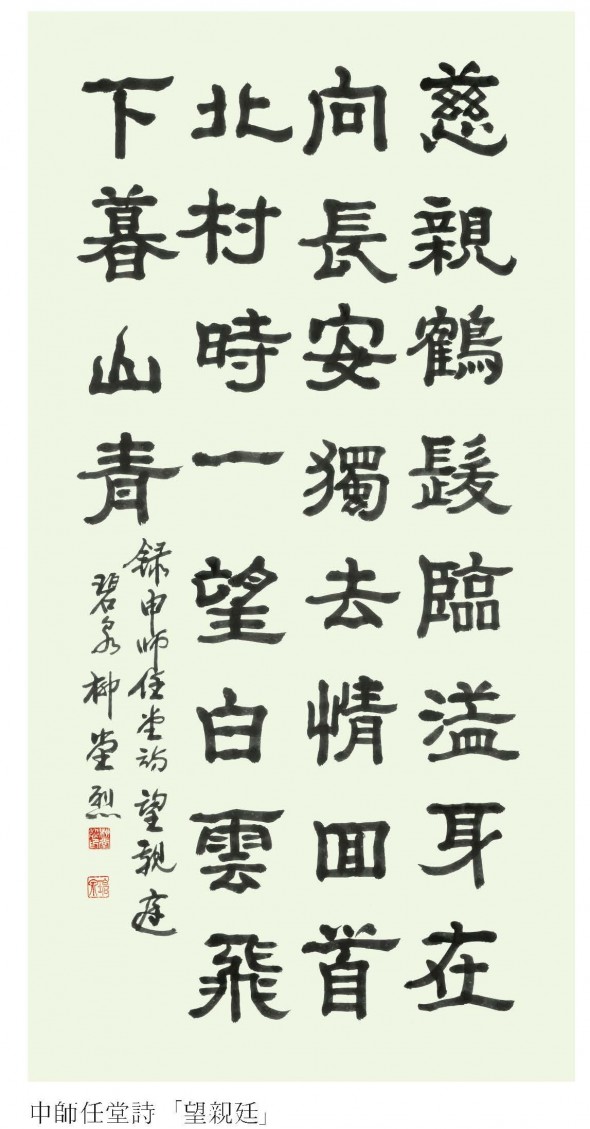 慈親鶴髮臨溢身在
向長安獨去情回首
北村時一望白雲飛
下暮山青
録申師任堂詩望親庭
碧泉柳堂烈
中師任堂詩「望親廷」